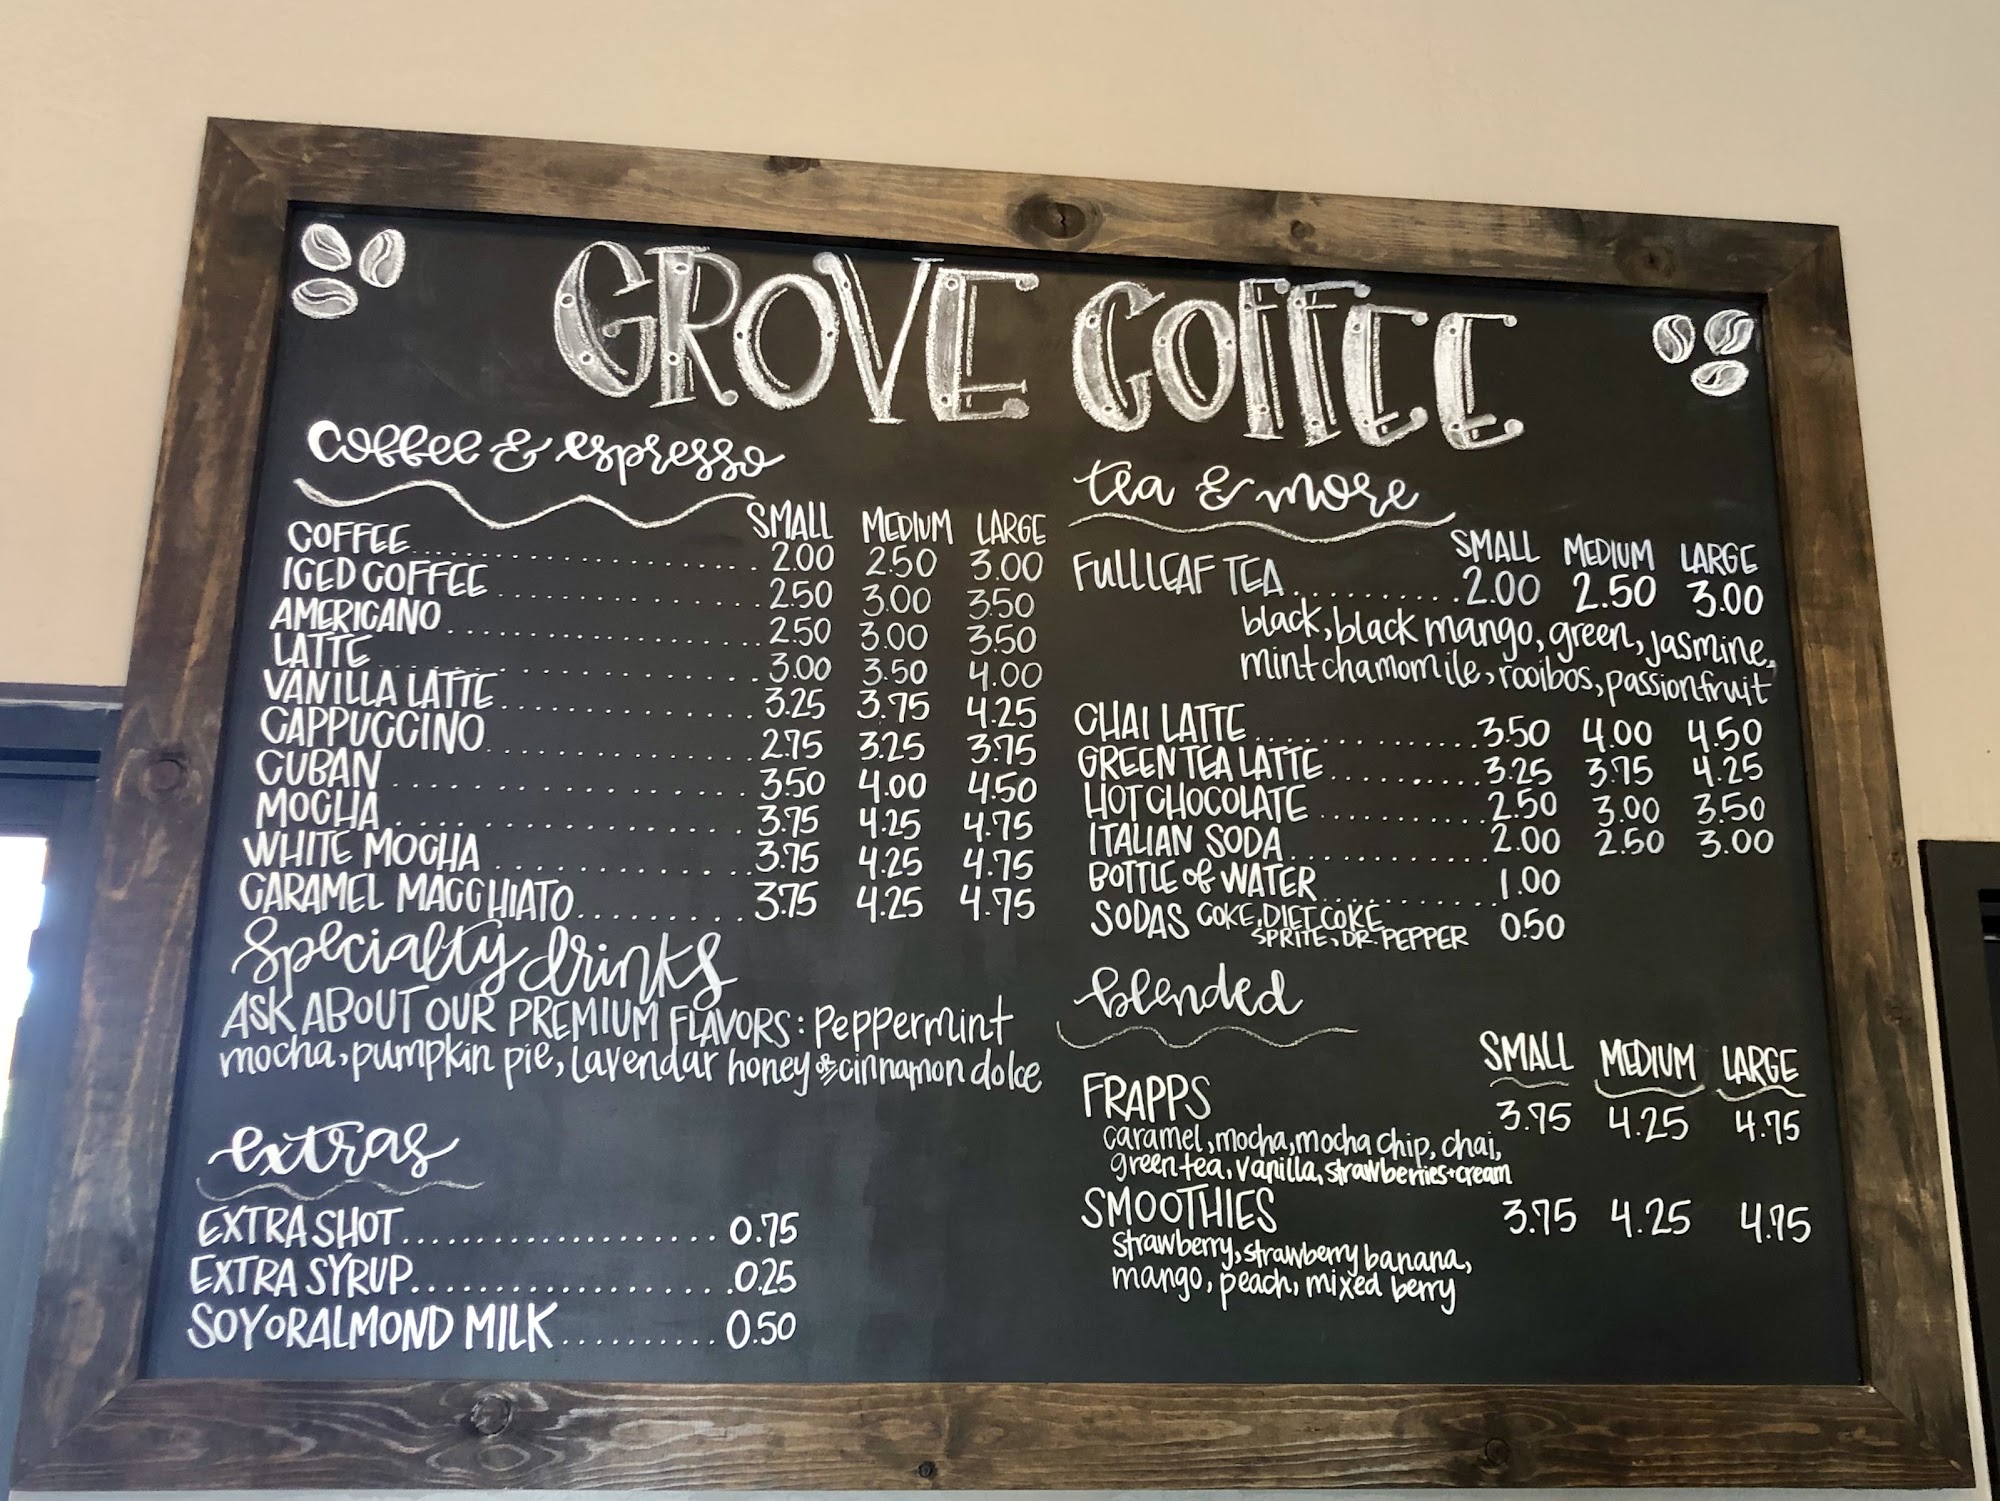 GROVE COFFEE
coffee & espresso
SMALL MEDIUM LARGE
COFFEE 2.00 2.50 3.00
ICED COFFEE 2.50 3.00 3.50
AMERICANO 2.50 3.00 3.50
LATTE 3.00 3.50 4.00
VANILLA LATTE 3.25 3.75 4.25
CAPPUCCINO 2.75 3.25 3.75
CUBAN 3.50 4.00 4.50
MOCHA 3.75 4.25 4.75
WHITE MOCHA 3.75 4.25 4.75
CARAMEL MACCHIATO 3.75 4.25 4.75
specialty drinks
ASK ABOUT OUR PREMIUM FLAVORS: peppermint
mocha, pumpkin pie, lavendar honey & cinnamon dolce
extras
EXTRA SHOT 0.75
EXTRA SYRUP 0.25
SOY OR ALMOND MILK 0.50
tea & more
SMALL MEDIUM LARGE
FULL LEAF TEA 2.00 2.50 3.00
black, black mango, green, jasmine,
mint chamomile, rooibos, passionfruit
CHAI LATTE 3.50 4.00 4.50
GREEN TEA LATTE 3.25 3.75 4.25
HOT CHOCOLATE 2.50 3.00 3.50
ITALIAN SODA 2.00 2.50 3.00
BOTTLE of WATER 1.00
SODAS COKE, DIET COKE 0.50
SPRITE, DR. PEPPER
blended
SMALL MEDIUM LARGE
FRAPPS 3.75 4.25 4.75
caramel, mocha, mocha chip, chai,
green tea, vanilla, strawberries + cream
SMOOTHIES 3.75 4.25 4.75
strawberry, strawberry banana,
mango, peach, mixed berry